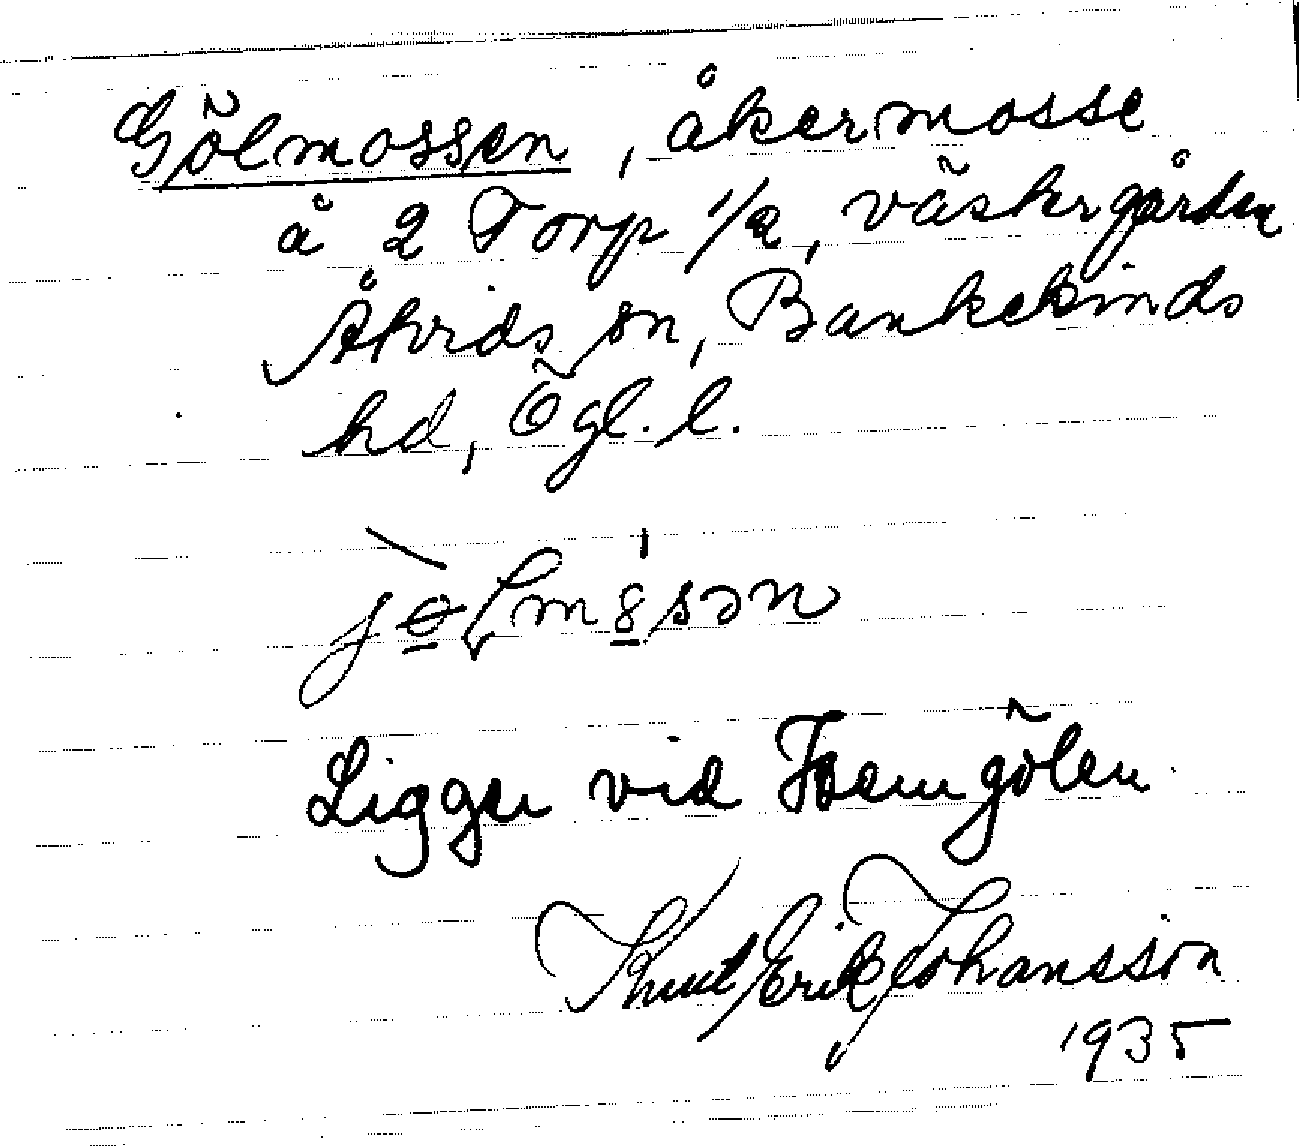 Gölmossen, åkermosse
å 2 Torp 1/2, västergården
Åtvids sn, Bankekinds
hd, Ögl. l.
Ligger vid Hemgölen
Knut Erik Johansson
1935